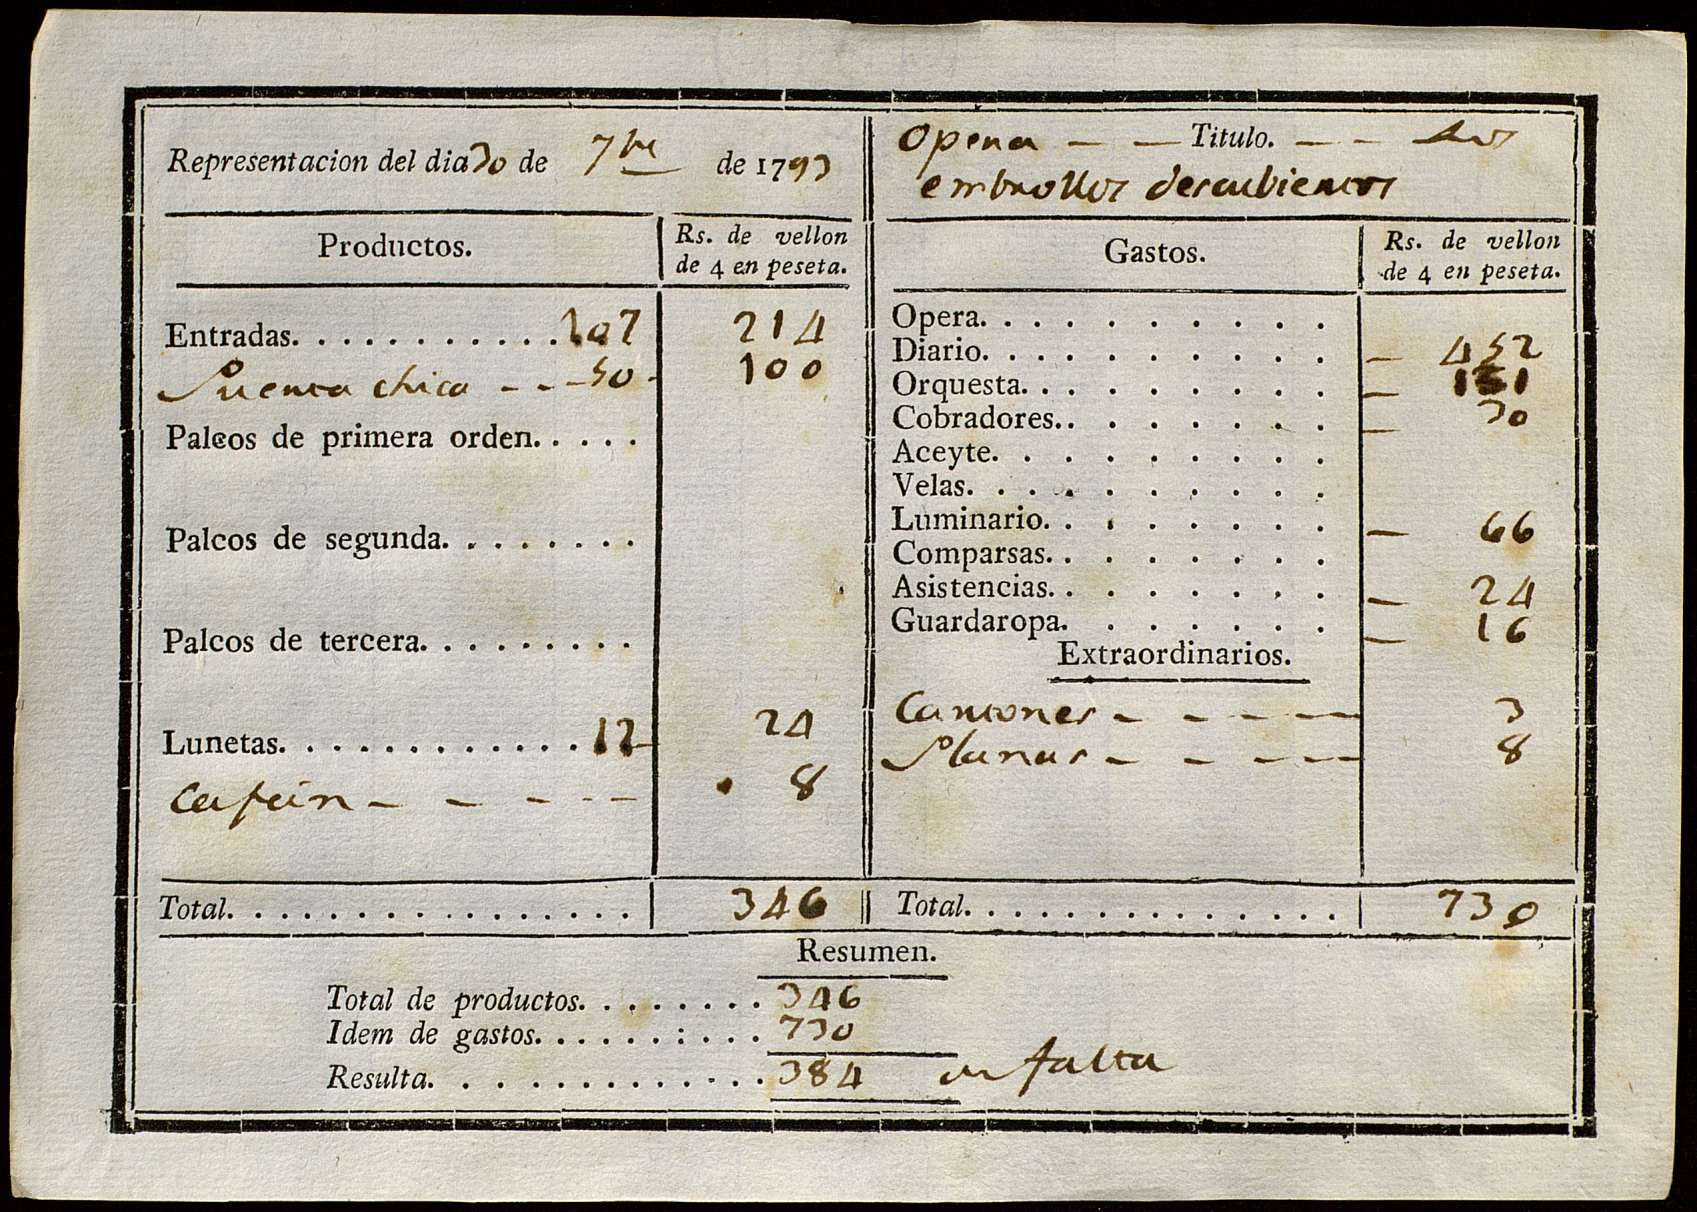 Representacion del dia 30 de 7bre de 1793
Opera — — Titulo. — — Los
embrollos descubiertos
Productos. Rs. de vellon
de 4 en peseta.
Entradas. . . . . . . . . . . . 107 214
Puerta chica - - - 50 - 100
Palcos de primera orden. . . . .
Palcos de segunda. . . . . . . .
Palcos de tercera. . . . . . . . .
Lunetas. . . . . . . . . . . . . 12 24
Cafein - - - - - 8
Total. . . . . . . . . . . . . . . . . 346
Gastos. Rs. de vellon
de 4 en peseta.
Opera. . . . . . . . . . .
Diario. . . . . . . . . . . — 452
Orquesta. . . . . . . . . — 131
Cobradores. . . . . . . . — 30
Aceyte. . . . . . . . . .
Velas. . . . . . . . . . .
Luminario. . . . . . . . — 66
Comparsas. . . . . . . .
Asistencias. . . . . . . . — 24
Guardaropa. . . . . . . — 16
Extraordinarios.
Cartones - - - - 3
Planas - - - - 8
Total. . . . . . . . . . . . . . . 730
Resumen.
Total de productos. . . . . . . . 346
Idem de gastos. . . . . . . . . . 730
Resulta. . . . . . . . . . . . . . 384 en falta